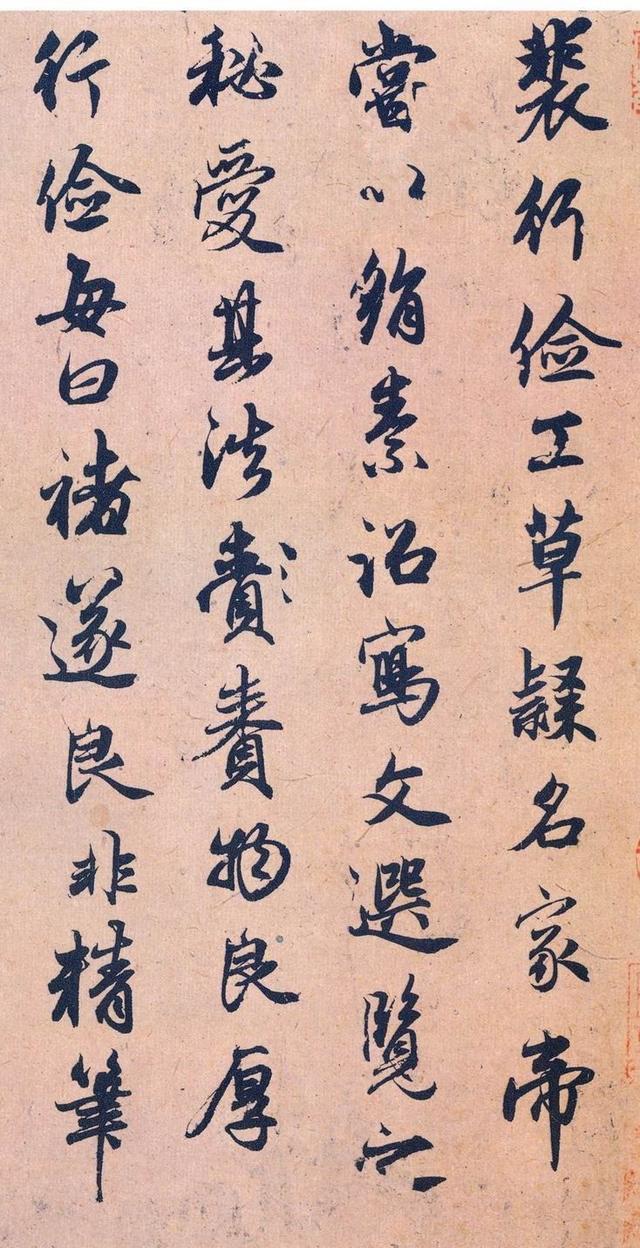 裴行俭工草隸名家帝
嘗以絹素詔寫文選覽之
秘愛其法賷賚物良厚
行俭每曰褚遂良非精筆